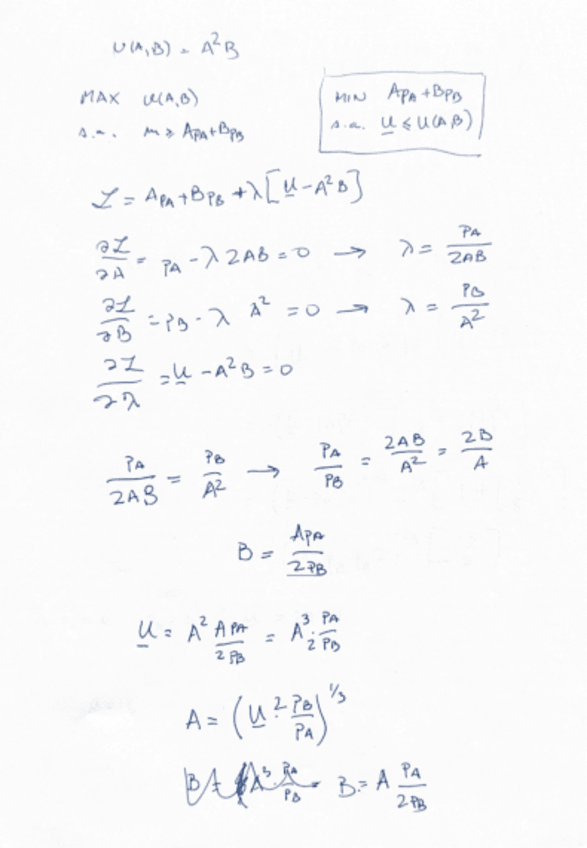 U(A,B) = A²B
MAX U(A,B)
s.a. m ≥ ApA + BpB
MIN ApA + BpB
s.a. U̲ ≤ U(A,B)
ℒ = ApA + BpB + λ[U̲ - A²B]
∂ℒ/∂A = pA - λ2AB = 0 → λ = pA/2AB
∂ℒ/∂B = pB - λ A² = 0 → λ = pB/A²
∂ℒ/∂λ = U̲ - A²B = 0
pA/2AB = pB/A² → pA/pB = 2AB/A² = 2B/A
B = ApA/2pB
U̲ = A² ApA/2pB = A³ · pA/2pB
A = (U̲ · 2 pB/pA)^1/3
B = A pA/2pB